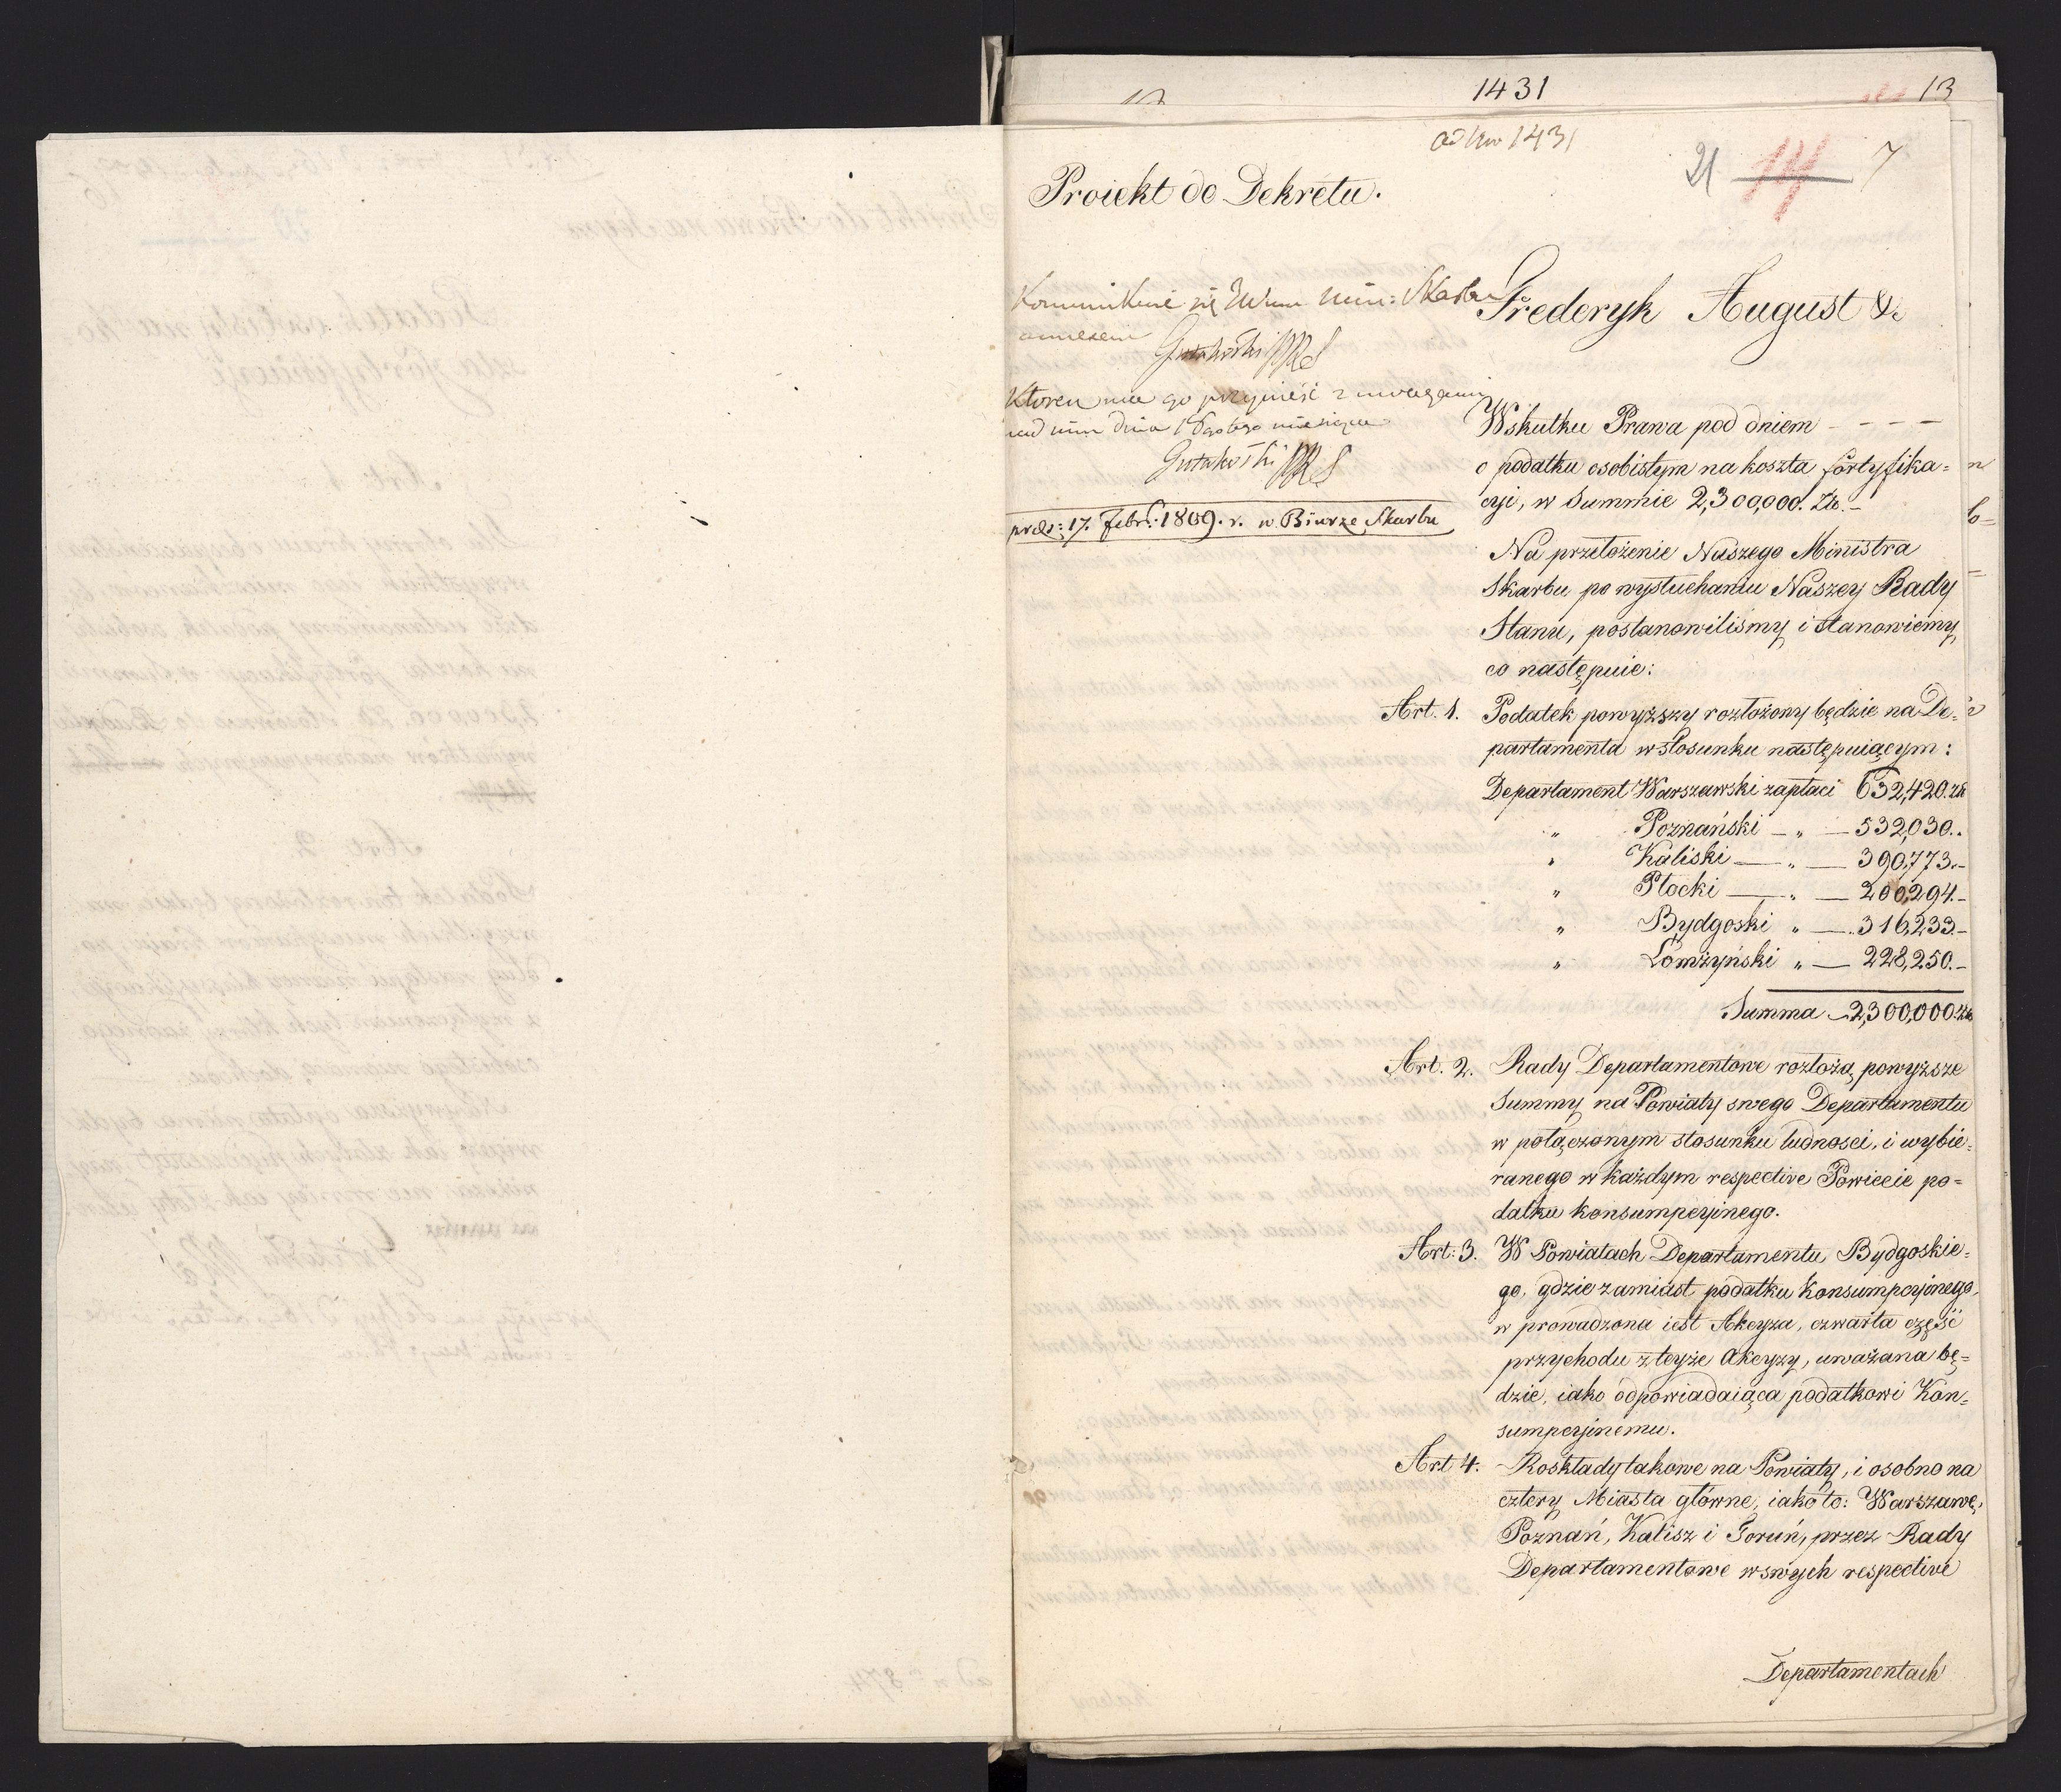 1431
13
ad Nro 1431
21 14 7
Proiekt do Dekretu.
Kommunikuie się Min: Skarbu
Gutakowski PRS
Ktoren ma go przynieść z uwagami
nad nim dnia tego miesiąca
Gutakowski PRS
præs: 17. Febr: 1809. r. w Biurze Skarbu
Frederyk August &c
Wskutku Prawa pod dniem - - - -
o podatku osobistym na koszta fortyfika=
cyi, w Summie 2,300,000. Zło. -
Na przełożenie Naszego Ministra
Skarbu po wysłuchaniu Naszey Rady
Stanu, postanowiliśmy i stanowiemy,
co następuie:
Art. 1. Podatek powyższy rozłożony będzie na De=
partamenta w stosunku następuiącym:
Departament Warszawski zapłaci 632,420. zł
" Poznański — " — 532,030. .
" Kaliski — " — 390,773. -
" Płocki — " — 200,294. -
" Bydgoski " — 316,233. -
" Łomżyński " — 228,250. -
Summa — 2,300,000. zło
Art. 2. Rady Departamentowe rozłożą powyższe
Summy na Powiaty swego Departamentu
w połączonym stosunku ludnosci, i wybie=
ranego w każdym respective Powiecie po=
datku konsumpcyinego.
Art: 3. W Powiatach Departamentu Bydgoskie=
go, gdzie zamiast podatku Konsumpcyinego,
w prowadzona iest Akcyza, czwarta część
przychodu z teyże Akcyzy, uważana bę=
dzie, iako odpowiadaiąca podatkowi Kon=
sumpcyinemu.
Art 4. Roskłady takowe na Powiaty, i osobno na
cztery Miasta główne, iako to: Warszawę,
Poznań, Kalisz i Toruń, przez Rady
Departamentowe w swych respective
Departamentach